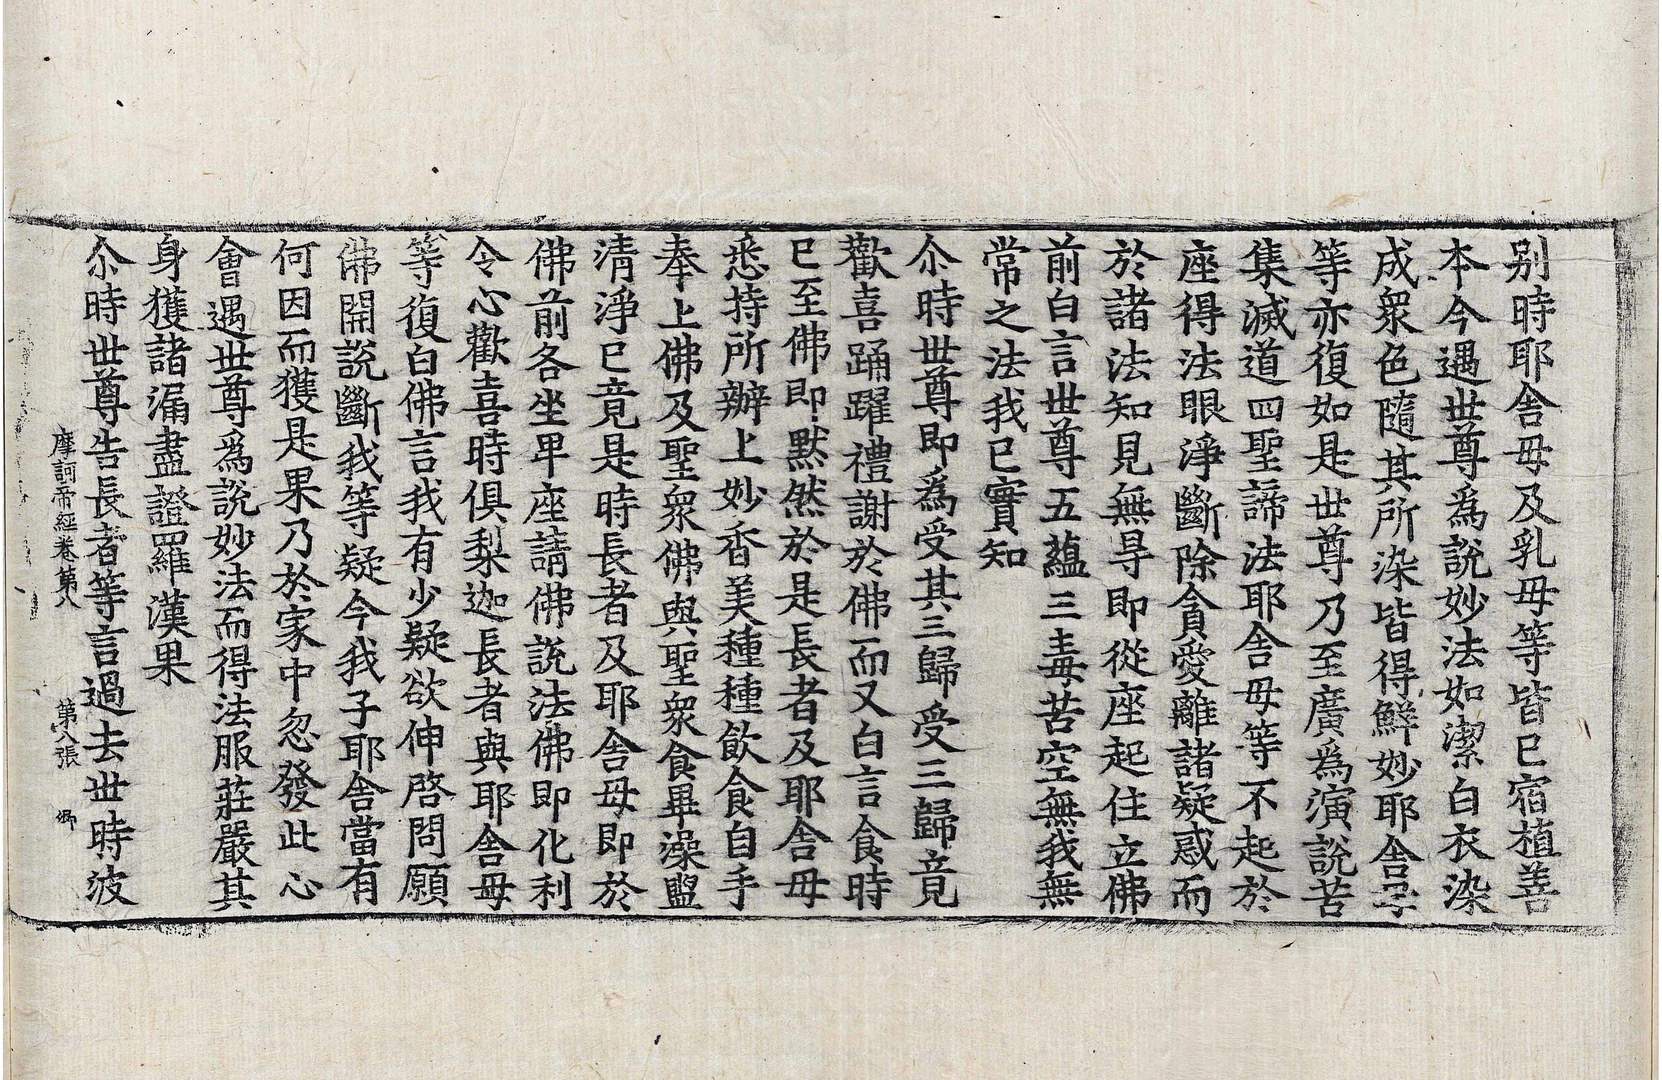 别時耶舍母及乳母等皆已宿植善
本今遇世尊爲說妙法如潔白衣染
成衆色隨其所染皆得鮮妙耶舍母
等亦復如是世尊乃至廣爲演說苦
集滅道四聖諦法耶舍母等不起於
座得法眼淨斷除貪愛離諸疑惑而
於諸法知見無㝵即從座起住立佛
前白言世尊五蘊三毒苦空無我無
常之法我已實知
尒時世尊即爲受其三歸受三歸竟
歡喜踊躍禮謝於佛而又白言食時
已至佛即默然於是長者及耶舍母
悉持所辦上妙香美種種飲食自手
奉上佛及聖衆佛與聖衆食畢澡盥
清淨已竟是時長者及耶舍母即於
佛前各坐卑座請佛說法佛即化利
令心歡喜時俱梨迦長者與耶舍母
等復白佛言我有少疑欲伸啓問願
佛開說斷我等疑今我子耶舍當有
何因而獲是果乃於家中忽發此心
會遇世尊爲說妙法而得法服莊嚴其
身獲諸漏盡證羅漢果
尒時世尊告長者等言過去世時波
摩訶帝經卷第八 第八張 卿